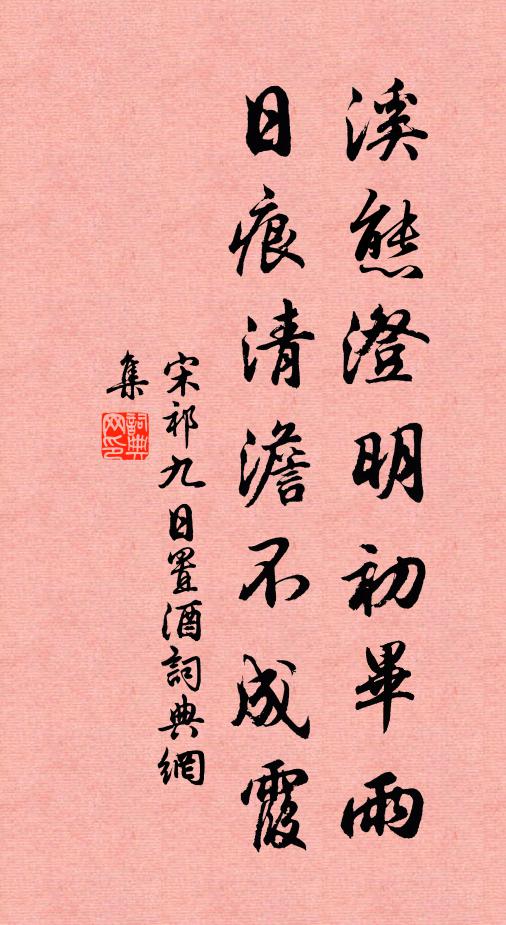 溪態澄明初畢雨
日痕清澹不成霞
宋祁九日置酒詞典網
集
詞典
网印